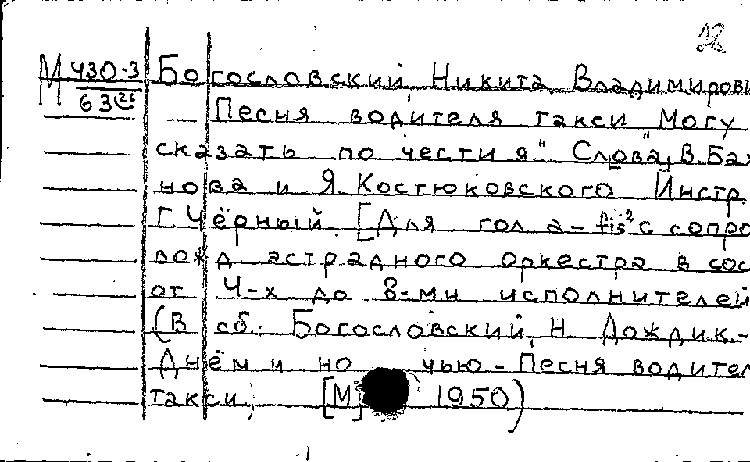 12
М 430-3 Богословский, Никита Владимирови
63
— Песня водителя такси „Могу
сказать по чести я" Слова В. Ба
нова и Я. Костюковского Инстр.
Г. Чёрный. [Для гол a-fis² с сопро
вожд эстрадного оркестра в сос
от 4-х до 8-ми исполнителей
(В сб: Богословский, Н Дождик.-
Днём и ночью - Песня водител
такси, [М] 1950)